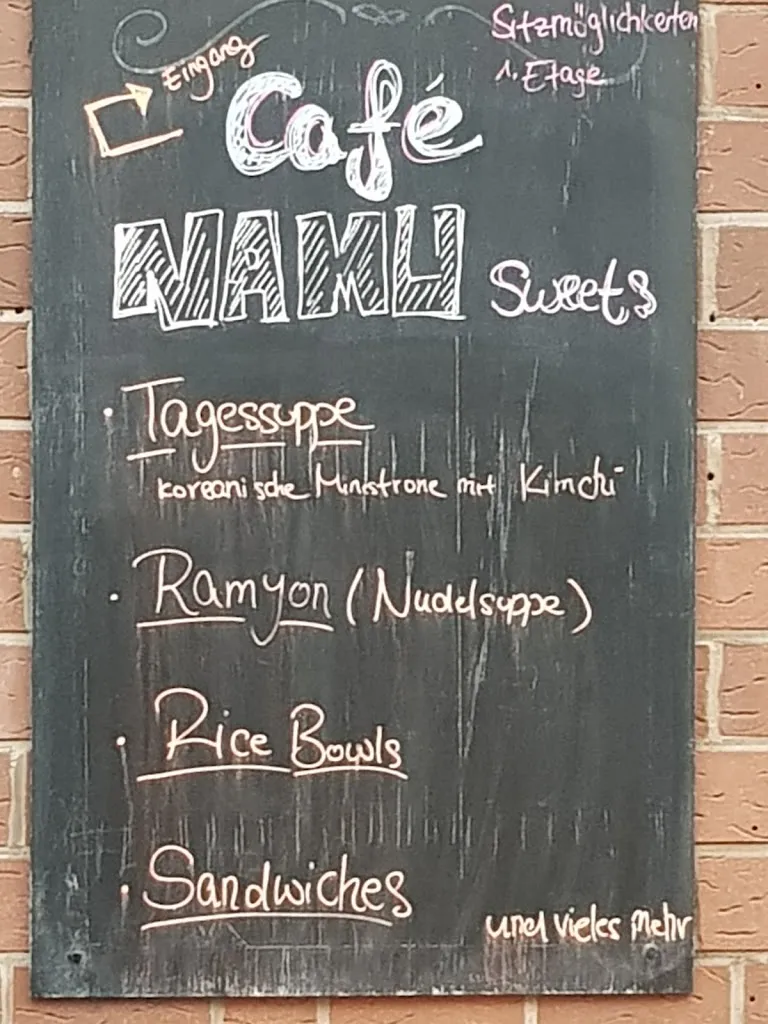 Sitzmöglichkeiten
1. Etage
Eingang
Café
NAMU Sweets
· Tagessuppe
koreanische Minestrone mit Kimchi
· Ramyon (Nudelsuppe)
· Rice Bowls
· Sandwiches
und vieles mehr